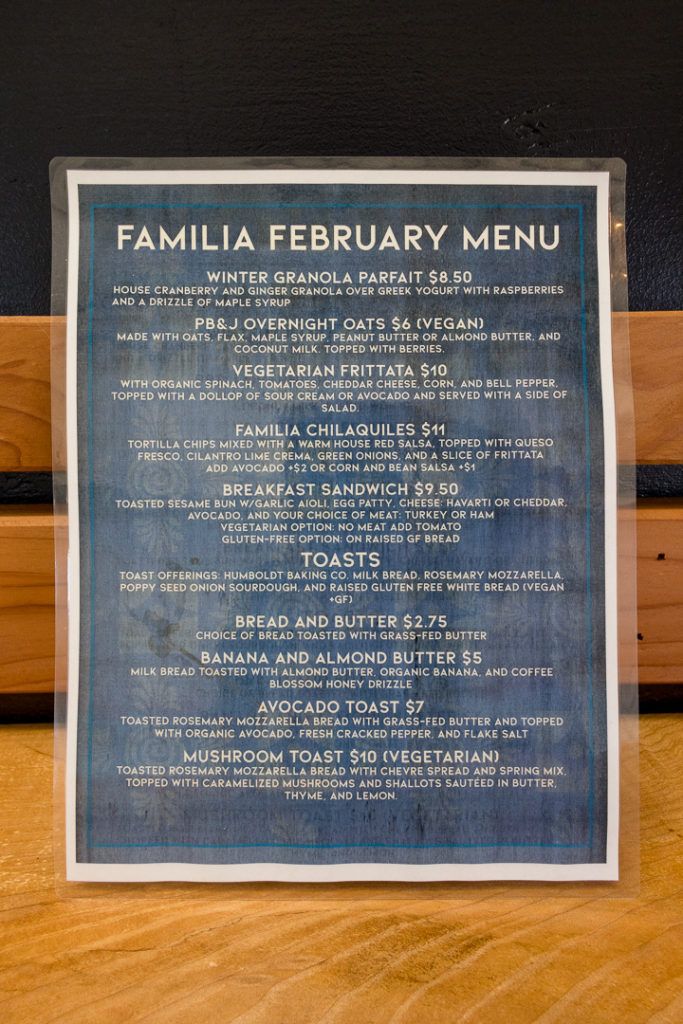 FAMILIA FEBRUARY MENU
WINTER GRANOLA PARFAIT $8.50
HOUSE CRANBERRY AND GINGER GRANOLA OVER GREEK YOGURT WITH RASPBERRIES
AND A DRIZZLE OF MAPLE SYRUP
PB&J OVERNIGHT OATS $6 (VEGAN)
MADE WITH OATS, FLAX, MAPLE SYRUP, PEANUT BUTTER OR ALMOND BUTTER, AND
COCONUT MILK. TOPPED WITH BERRIES.
VEGETARIAN FRITTATA $10
WITH ORGANIC SPINACH, TOMATOES, CHEDDAR CHEESE, CORN, AND BELL PEPPER,
TOPPED WITH A DOLLOP OF SOUR CREAM OR AVOCADO AND SERVED WITH A SIDE OF
SALAD.
FAMILIA CHILAQUILES $11
TORTILLA CHIPS MIXED WITH A WARM HOUSE RED SALSA, TOPPED WITH QUESO
FRESCO, CILANTRO LIME CREMA, GREEN ONIONS, AND A SLICE OF FRITTATA
ADD AVOCADO +$2 OR CORN AND BEAN SALSA +$1
BREAKFAST SANDWICH $9.50
TOASTED SESAME BUN W/GARLIC AIOLI, EGG PATTY, CHEESE: HAVARTI OR CHEDDAR,
AVOCADO, AND YOUR CHOICE OF MEAT: TURKEY OR HAM
VEGETARIAN OPTION: NO MEAT ADD TOMATO
GLUTEN-FREE OPTION: ON RAISED GF BREAD
TOASTS
TOAST OFFERINGS: HUMBOLDT BAKING CO. MILK BREAD, ROSEMARY MOZZARELLA,
POPPY SEED ONION SOURDOUGH, AND RAISED GLUTEN FREE WHITE BREAD (VEGAN
+GF)
BREAD AND BUTTER $2.75
CHOICE OF BREAD TOASTED WITH GRASS-FED BUTTER
BANANA AND ALMOND BUTTER $5
MILK BREAD TOASTED WITH ALMOND BUTTER, ORGANIC BANANA, AND COFFEE
BLOSSOM HONEY DRIZZLE
AVOCADO TOAST $7
TOASTED ROSEMARY MOZZARELLA BREAD WITH GRASS-FED BUTTER AND TOPPED
WITH ORGANIC AVOCADO, FRESH CRACKED PEPPER, AND FLAKE SALT
MUSHROOM TOAST $10 (VEGETARIAN)
TOASTED ROSEMARY MOZZARELLA BREAD WITH CHEVRE SPREAD AND SPRING MIX,
TOPPED WITH CARAMELIZED MUSHROOMS AND SHALLOTS SAUTÉED IN BUTTER,
THYME, AND LEMON.